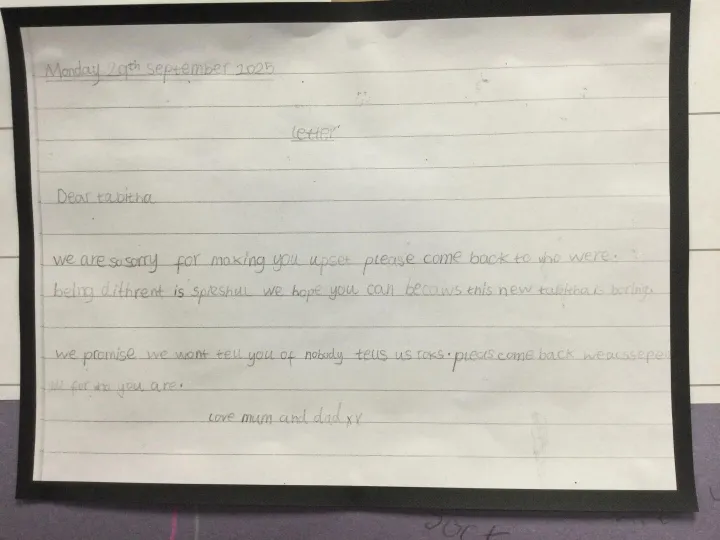 Monday 29th September 2025
Letter
Dear tabitha
we are so sorry for making you upset please come back to who were.
being dithrent is speshul we hope you can becaws this new tabitha is boring.
we promise we wont tell you of nobody tells us
come back
for who you are.
Love mum and dad xx